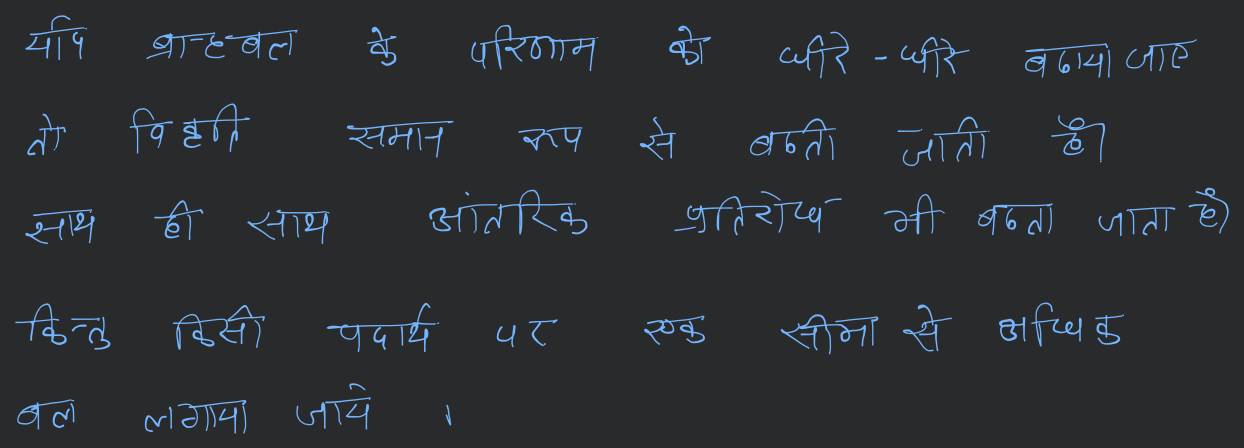 यदि बाह्यबल के परिणाम को धीरे-धीरे बढाया जाए
तो विकृति समान रूप से बढती जाती है।
साथ ही साथ आंतरिक प्रतिरोध भी बढता जाता है।
किन्तु किसी पदार्थ पर एक सीमा से अधिक
बल लगाया जाये ।